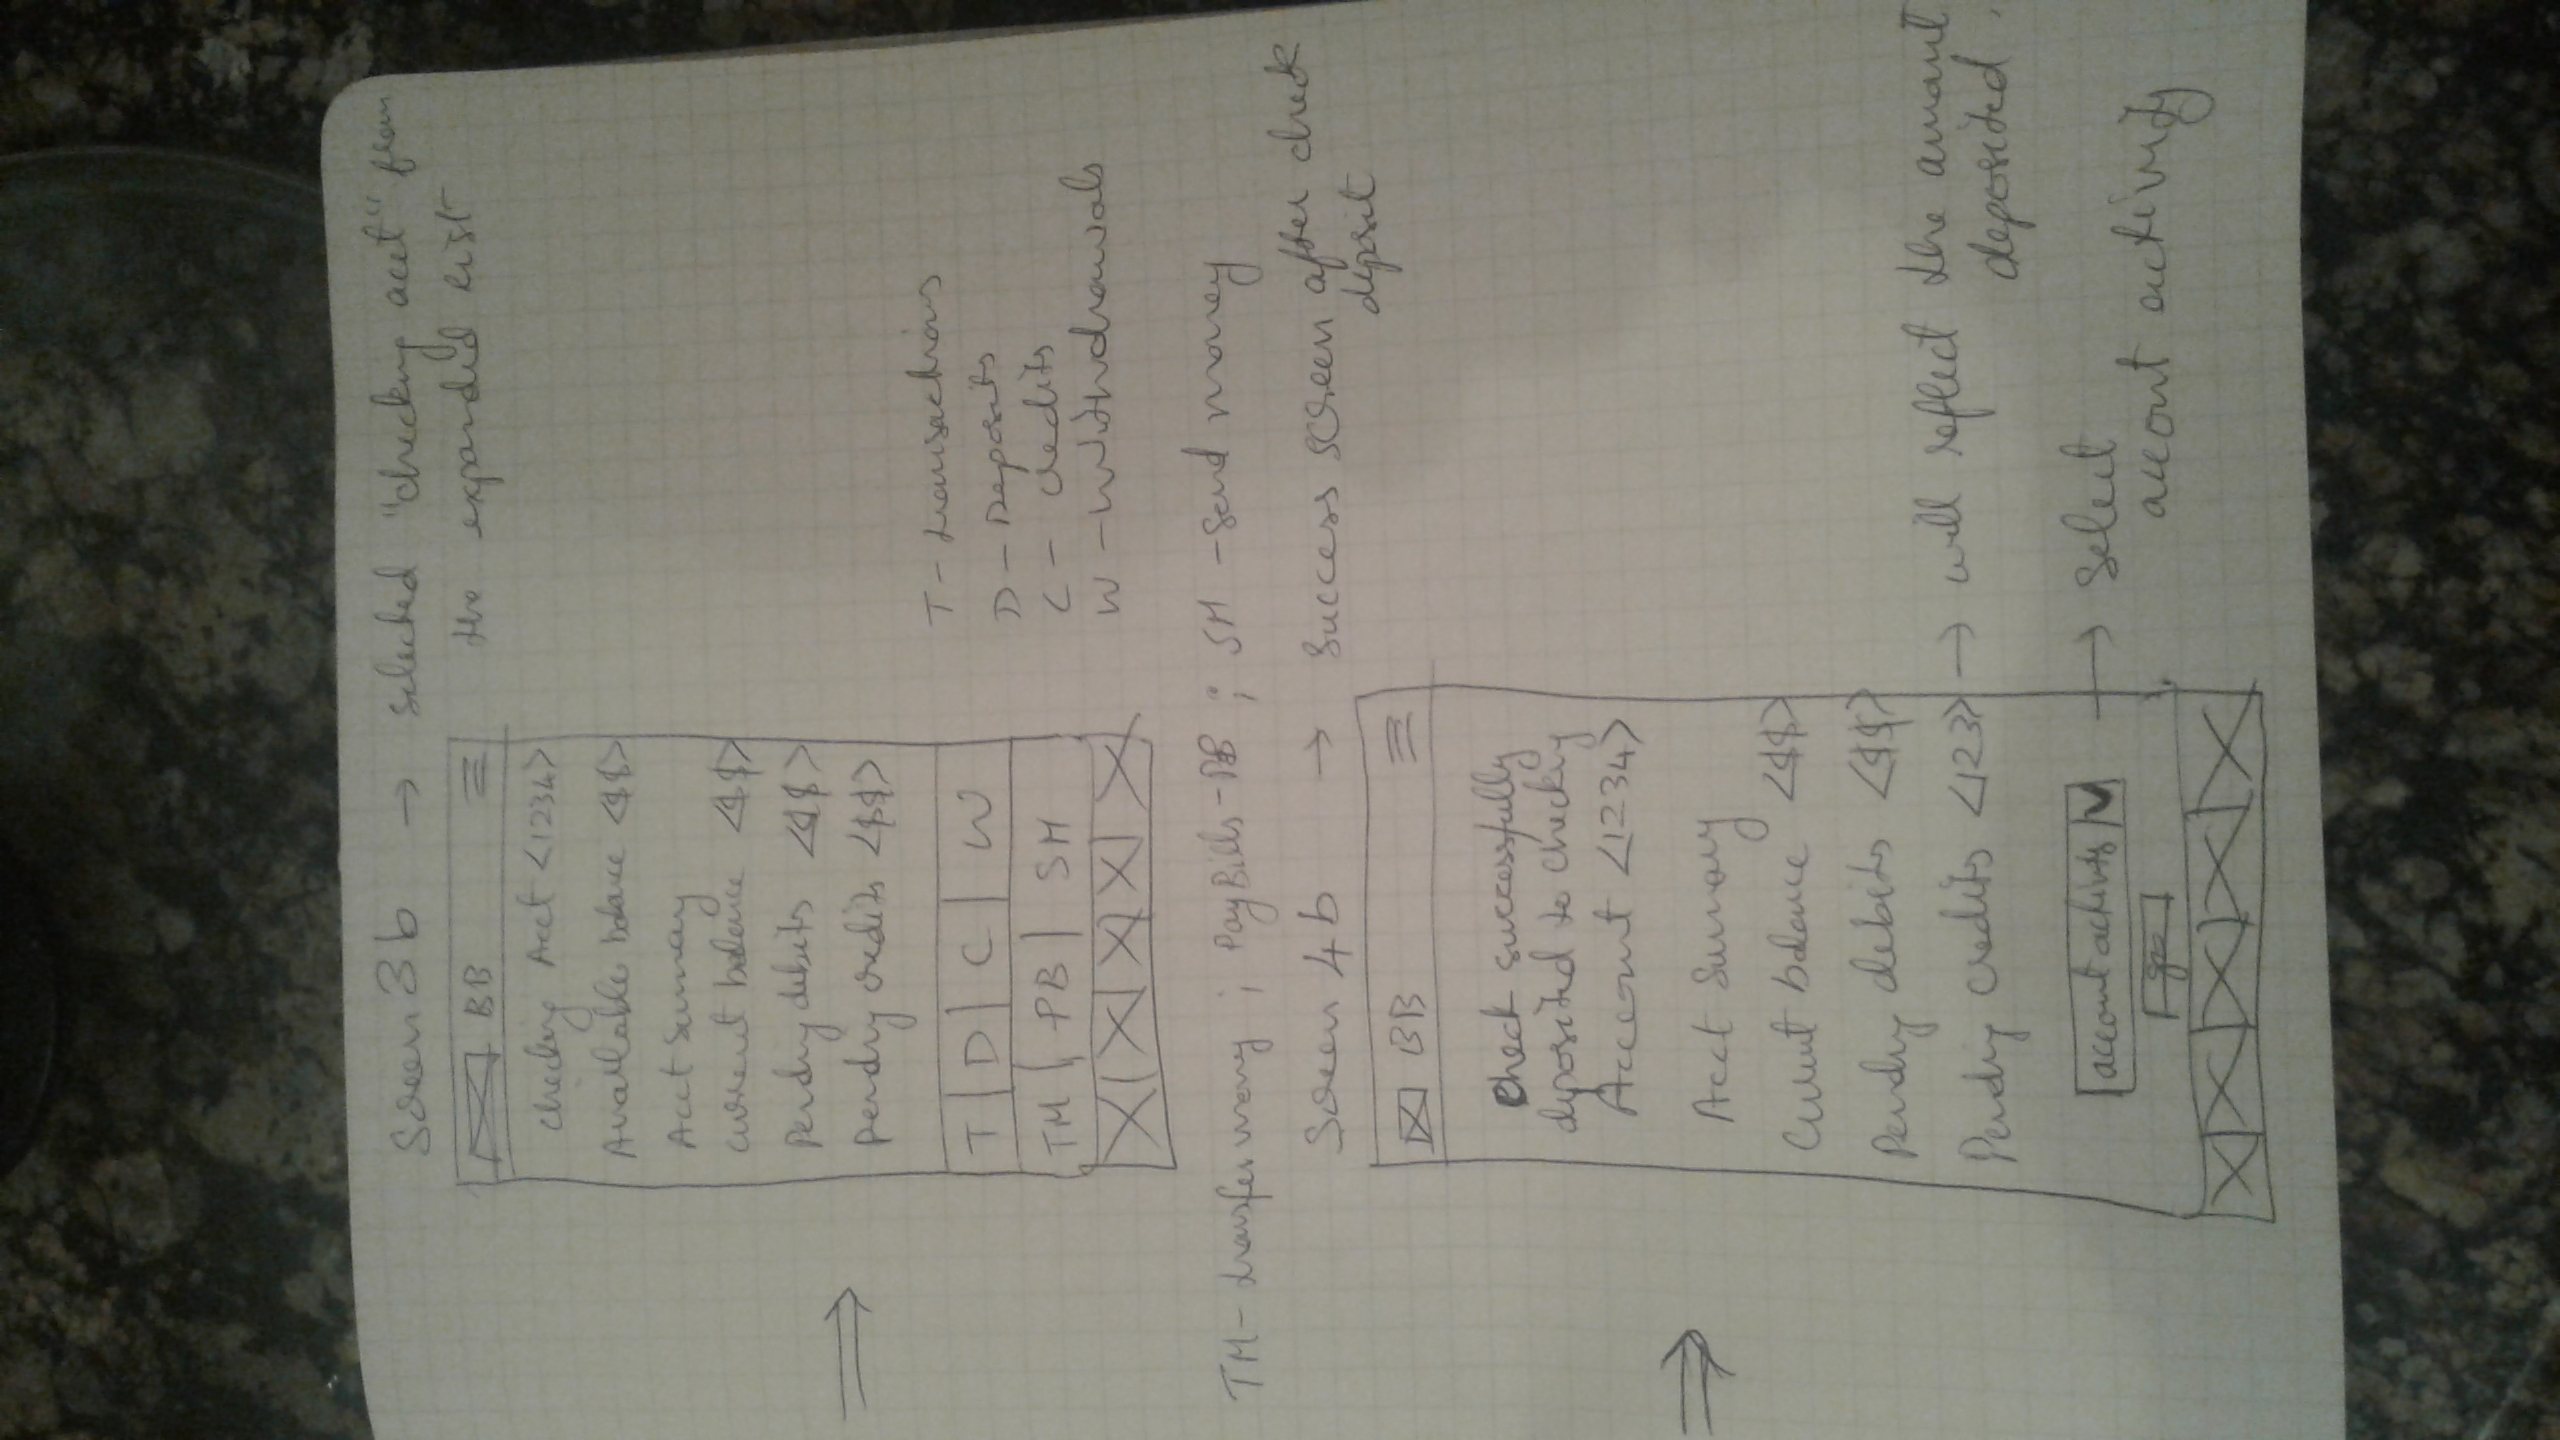 Screen 3b → selected "checking acct" from
the expanded list
BB
checking Acct <1234>
Available balance <$$>
Acct Summary
current balance <$$>
Pending debits <$$>
Pending credits <$$>
T D C W
TM PB SM
T - transactions
D - Deposits
C - credits
W - Withdrawals
TM - transfer money ; PayBills - PB ; SM - Send money
Screen 4b → Success screen after check
deposit
BB
Check successfully
deposited to checking
Account <1234>
Acct Summary
Current balance <$$>
Pending debits <$$>
Pending credits <123> → will reflect the amount
deposited.
account activity → Select
account activity
go